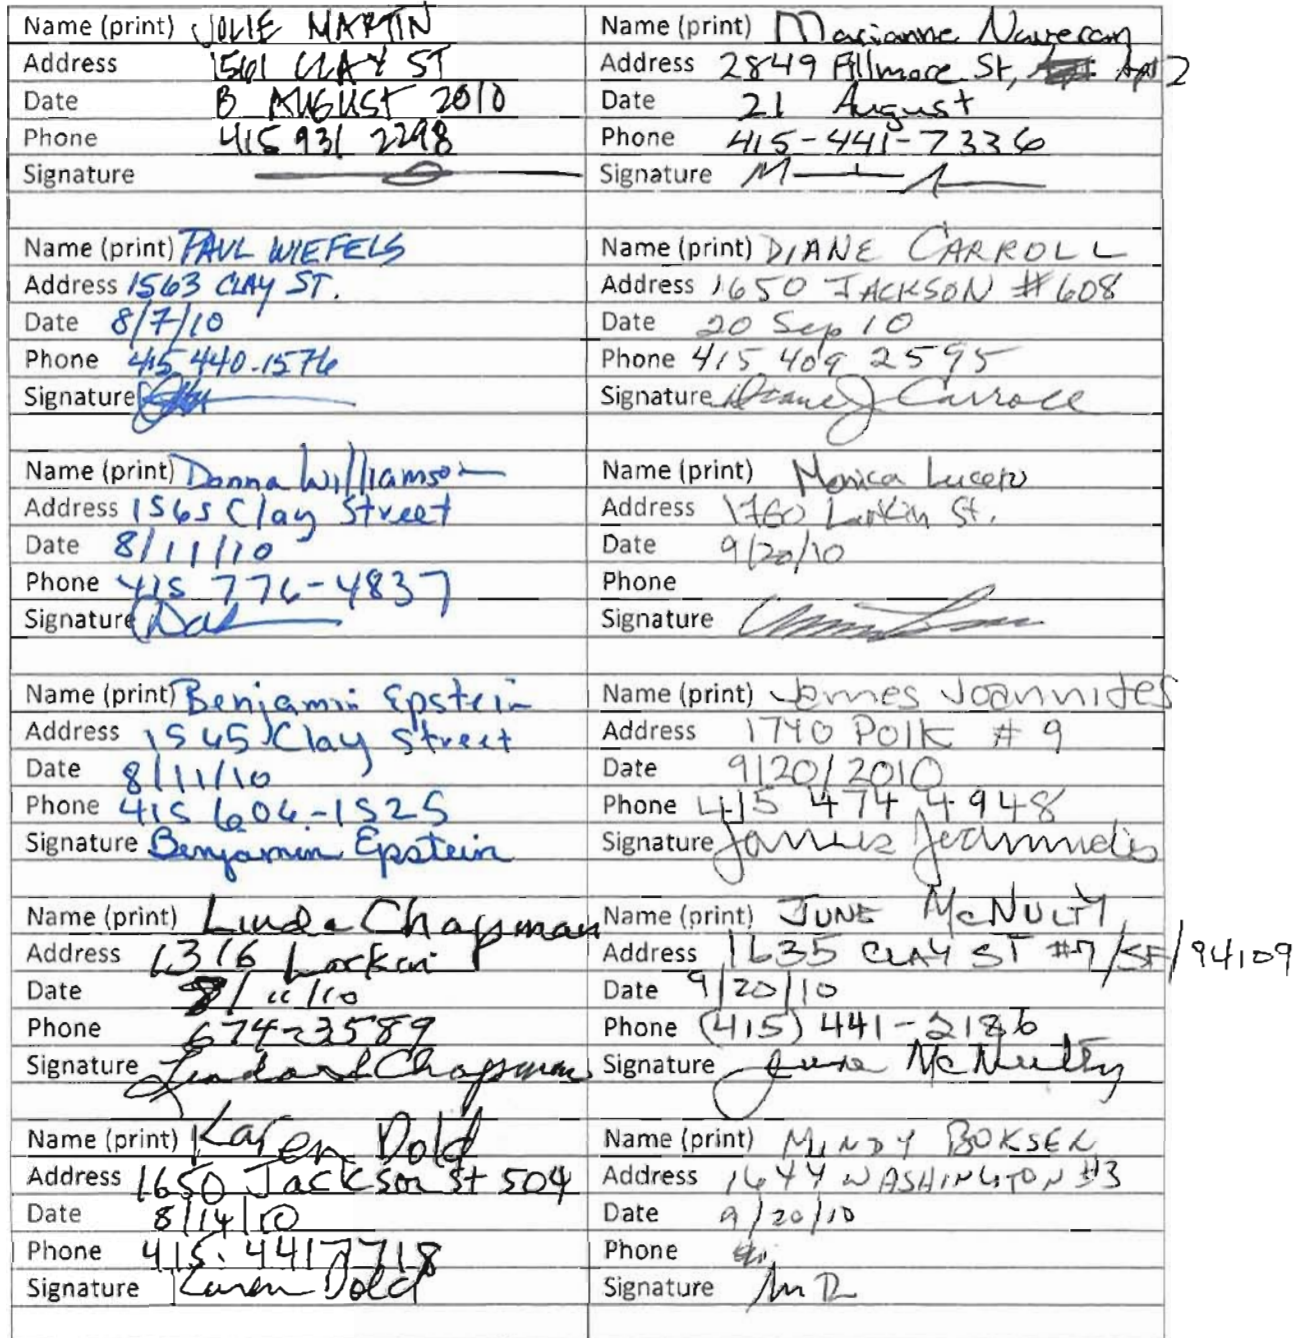 Name (print) JOLIE MARTIN
Address 1561 CLAY ST
Date 8 AUGUST 2010
Phone 415 931 2298
Signature
Name (print) PAUL WIEFELS
Address 1563 CLAY ST.
Date 8/7/10
Phone 415 440-1576
Signature
Name (print) Donna Williamson
Address 1565 Clay Street
Date 8/11/10
Phone 415 776-4837
Signature
Name (print) Benjamin Epstein
Address 1565 Clay Street
Date 8/11/10
Phone 415 606-1525
Signature Benjamin Epstein
Name (print) Linda Chapman
Address 1316 Larkin
Date 8/11/10
Phone 674-3589
Signature Chapman
Name (print) Karen Dold
Address 1650 Jackson St 504
Date 8/14/10
Phone 415. 441 7718
Signature Karen Dold
Name (print) Marianne
Address 2849 Fillmore St, Apt 2
Date 21 August
Phone 415-441-7336
Signature
Name (print) DIANE CARROLL
Address 1650 JACKSON #608
Date 20 Sep 10
Phone 415 409 2595
Signature Diane J Carroll
Name (print) Monica Lucero
Address 1760 Larkin St.
Date 9/20/10
Phone
Signature
Name (print) James Joannides
Address 1740 Polk # 9
Date 9/20/2010
Phone 415 474 4948
Signature James Joannides
Name (print) JUNE McNULTY
Address 1635 CLAY ST #7/SF/94109
Date 9/20/10
Phone (415) 441-2186
Signature June McNulty
Name (print) MINDY BOKSER
Address 1644 WASHINGTON #3
Date 9/20/10
Phone
Signature